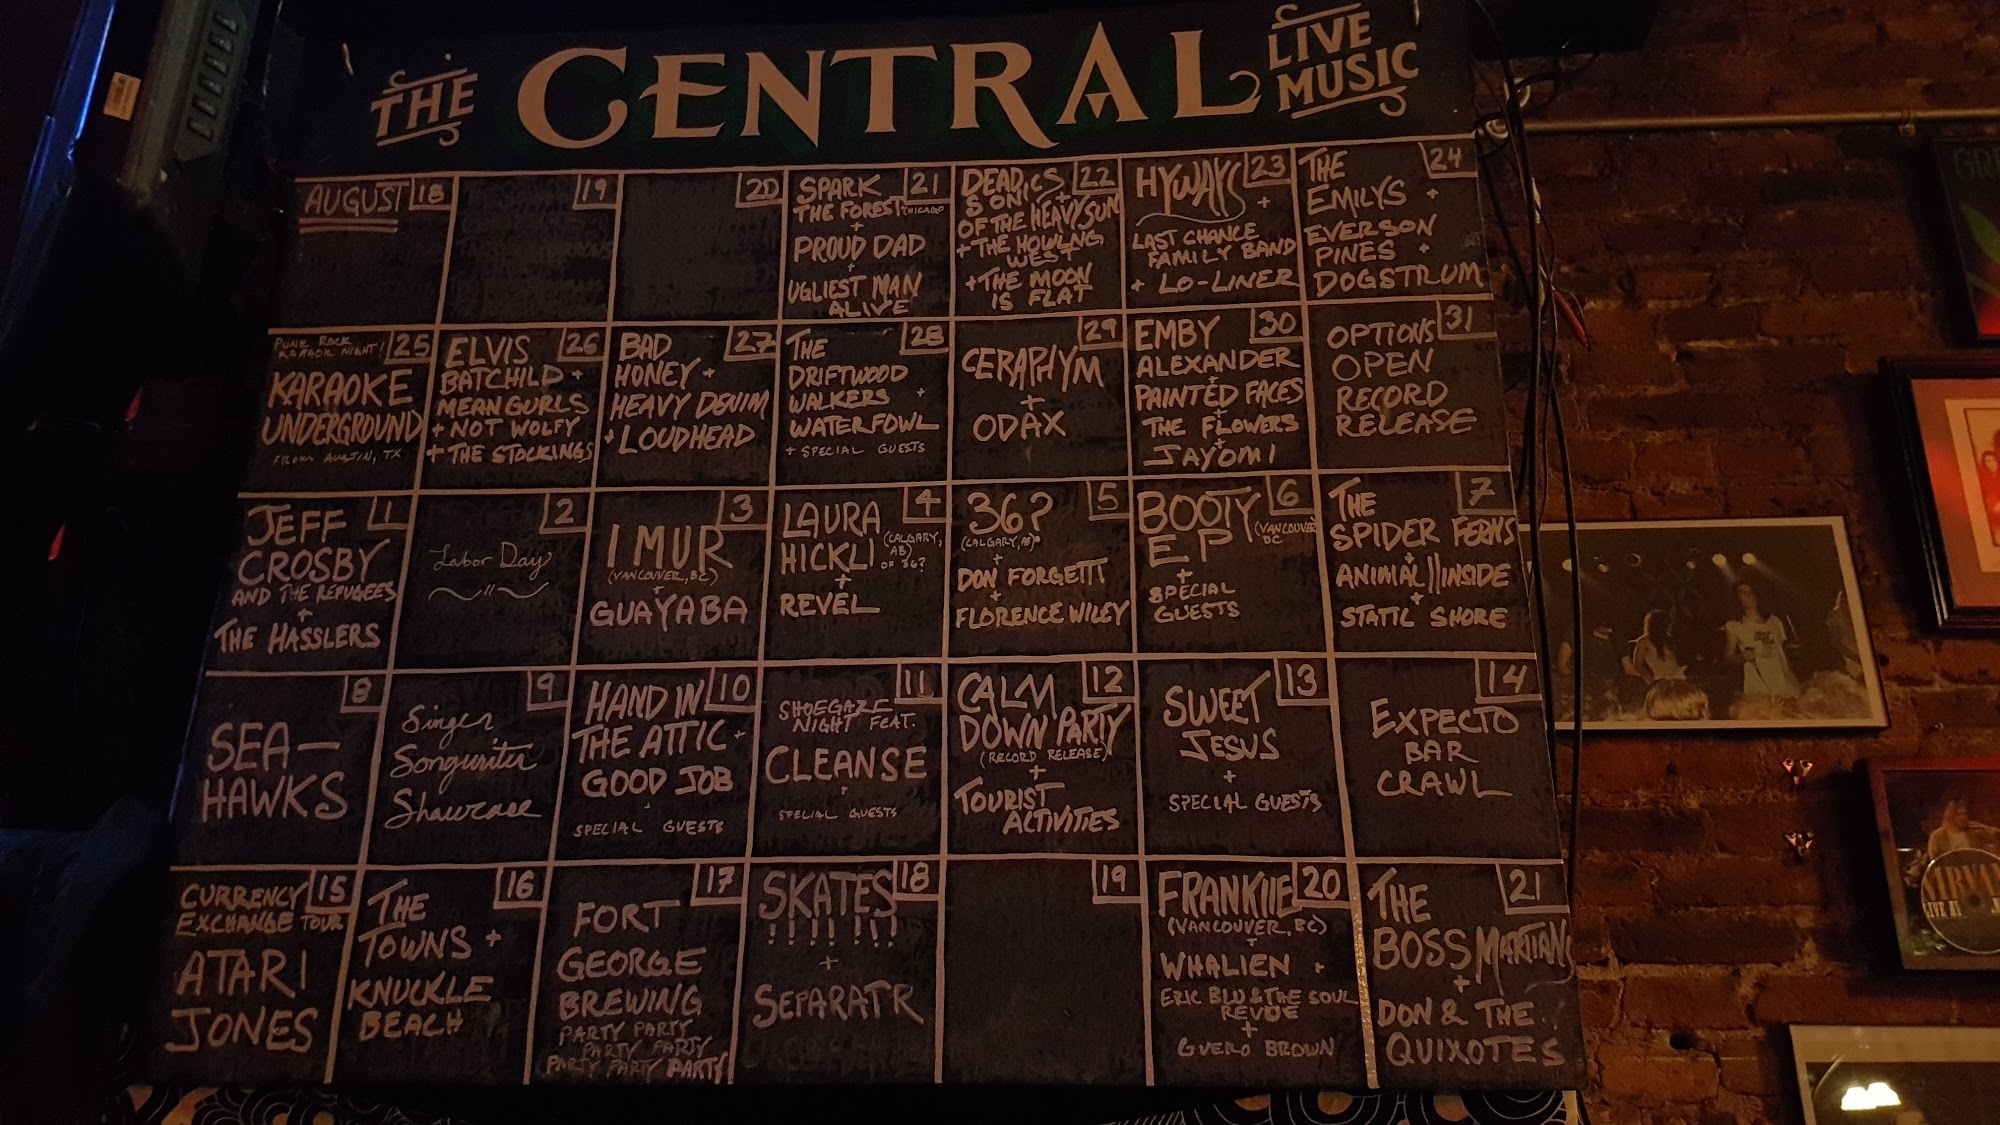 THE
CENTRAL
LIVE
MUSIC
AUGUST 18
19
20
SPARK 21
THE FOREST CHICAGO
+
PROUD DAD
+
UGLIEST MAN
ALIVE
DEAD 22
SONICS +
OF THE HEAVY SUN
+ THE HOWLNG
WEST
+ THE MOON
IS FLAT
HYWAYS 23
+
LAST CHANCE
FAMILY BAND
+ LO-LINER
THE 24
EMILYS +
EVERSON
PINES +
DOGSTRUM
PUNK ROCK
KARAOK NIGHT! 25
KARAOKE
UNDERGROUND
FROM AUSTIN, TX
ELVIS 26
BATCHILD +
MEAN GURLS
+ NOT WOLFY
+ THE STOCKINGS
BAD 27
HONEY +
HEAVY DENIM
+ LOUDHEAD
THE 28
DRIFTWOOD
WALKERS +
WATERFOWL
+ SPECIAL GUESTS
29
CERAPHYM
+
ODAX
EMBY 30
ALEXANDER
+
PAINTED FACES
+
THE FLOWERS
+
JAYOMI
OPTIONS 31
OPEN
RECORD
RELEASE
JEFF 1
CROSBY
AND THE REFUGEES
+
THE HASSLERS
2
Labor Day
3
I MUR
(VANCOUVER, BC)
+
GUAYABA
LAURA 4
HICKLI (CALGARY, AB)
OF 36?
+
REVEL
36? 5
(CALGARY, AB)
+
DON FORGETTI
+
FLORENCE WILEY
BOOTY 6
EP (VANCOUVER BC
+
SPECIAL
GUESTS
THE 7
SPIDER FERNS
+
ANIMAL||INSIDE
+
STATIC SHORE
8
SEA-
HAWKS
9
Singer
Songwriter
Showcase
HAND IN 10
THE ATTIC +
GOOD JOB
+
SPECIAL GUESTS
11
SHOEGAZE
NIGHT FEAT.
CLEANSE
+
SPECIAL GUESTS
CALM 12
DOWN PARTY
(RECORD RELEASE)
+
TOURIST
ACTIVITIES
13
SWEET
JESUS
+
SPECIAL GUESTS
14
EXPECTO
BAR
CRAWL
CURRENCY 15
EXCHANGE TOUR
ATARI
JONES
THE 16
TOWNS +
KNUCKLE
BEACH
17
FORT
GEORGE
BREWING
PARTY PARTY
PARTY PARTY
PARTY PARTY PARTY
SKATES 18
!!!!!!!
+
SEPARATR
19
FRANKIIE 20
(VANCOUVER, BC)
+
WHALIEN +
ERIC BLU & THE SOUL
REVUE
+
GUERO BROWN
THE 21
BOSS MARTIANS
+
DON & THE
QUIXOTES
NIRVA
LIVE